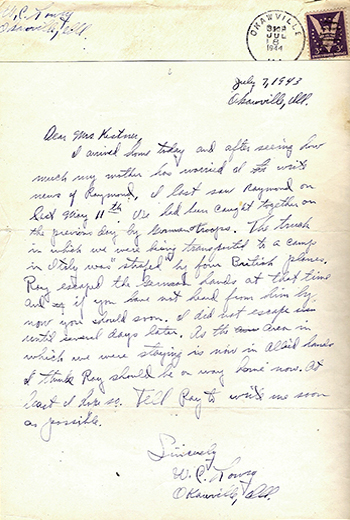 W. C. Lowry
Okawville, Ill.
OKAWVILLE
JUL
1944
3¢
July 7, 1943
Okawville, Ill.
Dear Mrs Kistner,
I arrived home today and after seeing how
much my mother has worried I write
news of Raymond. I last saw Raymond on
last May 11th. We had been caught together on
the previous day by German troops. The truck
in which we were being transported to a camp
in Italy was "strafed" by four British planes.
Ray escaped the German hands at that time
and if you have not heard from him by
now you should soon. I did not escape
until several days later. As the area in
which we were staying is now in Allied hands
I think Ray should be on way home now. At
least I hope so. Tell Ray to write me soon
as possible.
Sincerely
W. C. Lowry
Okawville, Ill.